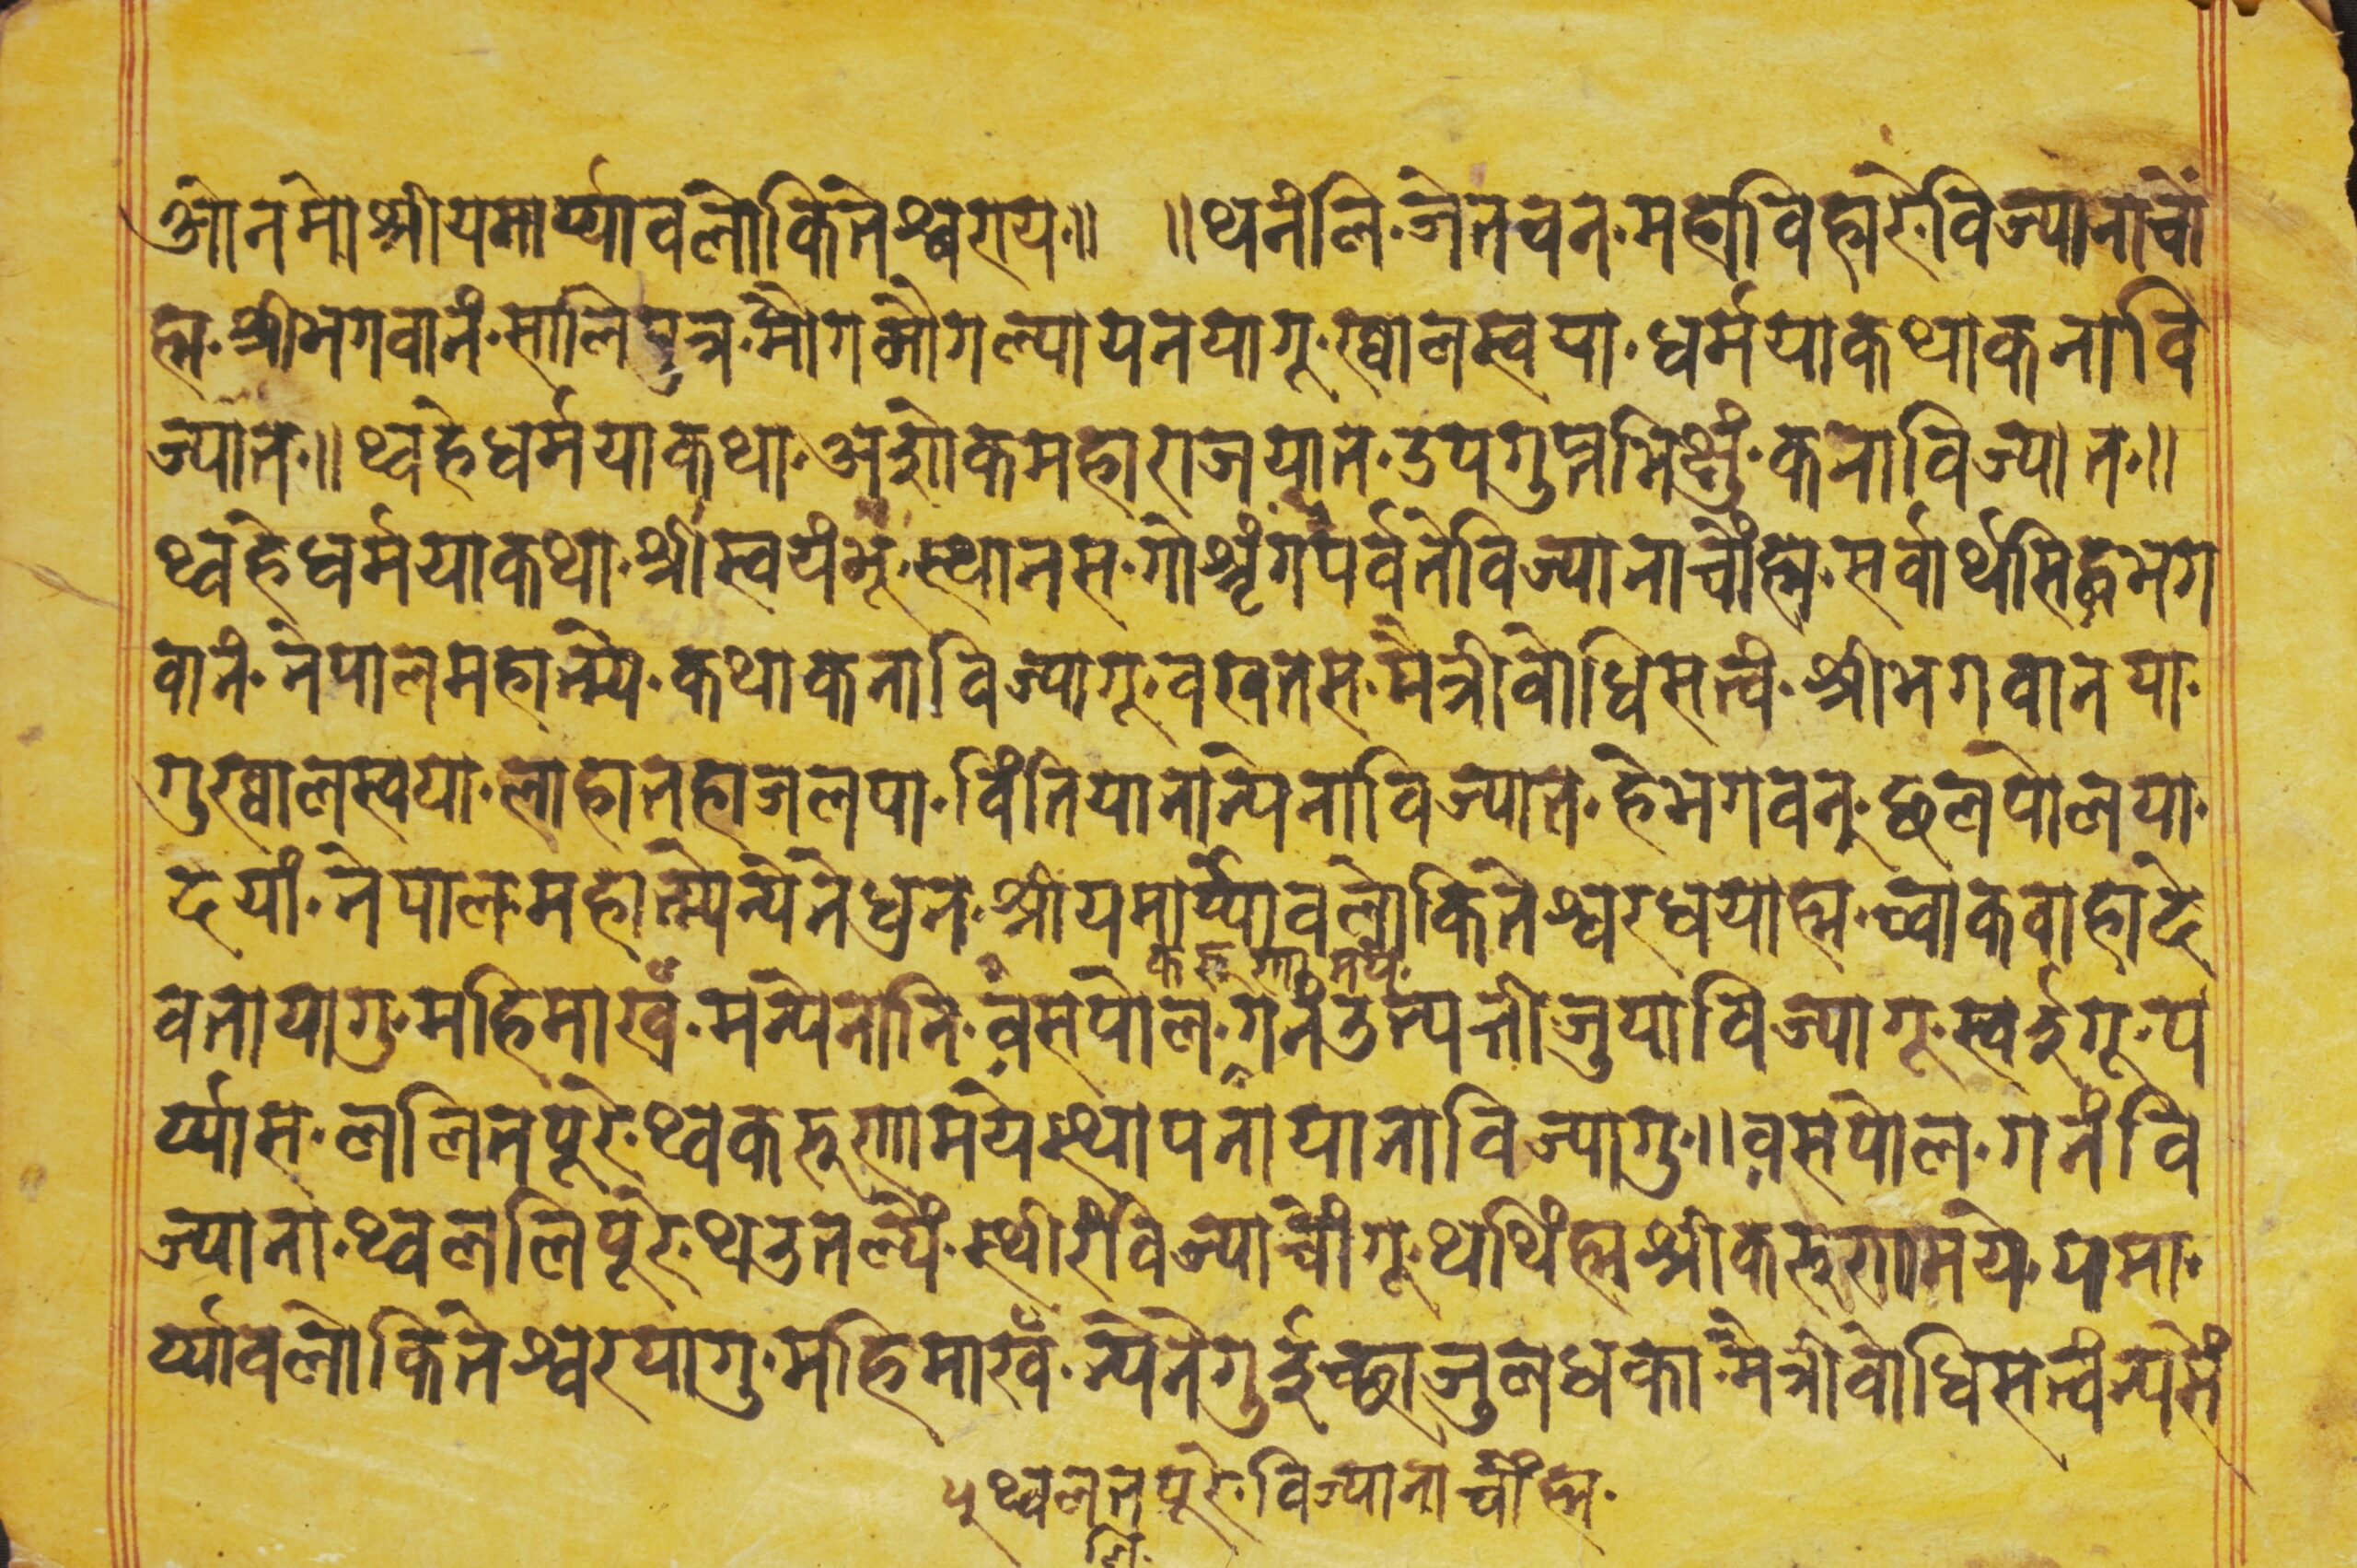 ओं नमो श्रीयमार्य्यावलोकितेश्वराय॰॥ ॥थनंलि॰जेतवन॰महाविहारे॰विज्यानाचों
ह्म॰श्रीभगवानं॰सालिपुत्र॰मौगमौगल्यायनयागू॰ख्वालस्वया॰धर्मयाकथाकनावि
ज्यात॰॥थ्वहेधर्मयाकथा॰अशोकमहाराजयात॰उपगुप्तभिक्षुं॰कनाविज्यात॰॥
थ्वहेधर्मयाकथा॰श्रीस्वयंभू॰स्थानस॰गोशृंगपर्वतेविज्यानाचोंह्म॰सर्वार्थसिद्धभग
वानं॰नेपालमहात्म्ये॰कथाकनाविज्यागू॰वखतस॰मैत्रीबोधिसत्वं॰श्रीभगवानया॰
गुख्वालस्वया॰लाहातहाजलपा॰विंतियानान्येनाविज्यात॰हेभगवन्॰छलपोलया॰
दयां॰नेपालमहात्म्येन्येनेधुन॰श्रीयमार्य्यावलोकितेश्वरधयाह्म॰च्वाकबाहादे
करुणामय॰
वतायागु॰महिमाखँ॰मन्येनानि॰वसपोल॰गनंउत्पत्तीजुयाविज्यागू॰स्वर्ङ्गगू॰प
र्य्यास॰ललितपूरे॰थ्वकरुणामयेस्थापनायानाविज्यागु॰॥वसपोल॰गनंवि
ज्याना॰थ्वललिपूरे॰थउतल्यें॰स्थीरंविज्याचोंगू॰थथिंह्मश्रीकरुणामये॰यमा॰
र्य्यावलोकितेश्वरयागु॰महिमाखँ॰न्येनेगुईच्छाजुलधका॰मैत्रीबोधिसत्वंन्येनें
पुथ्वललतपूरे॰विज्यानाचोंह्म॰
लि॰